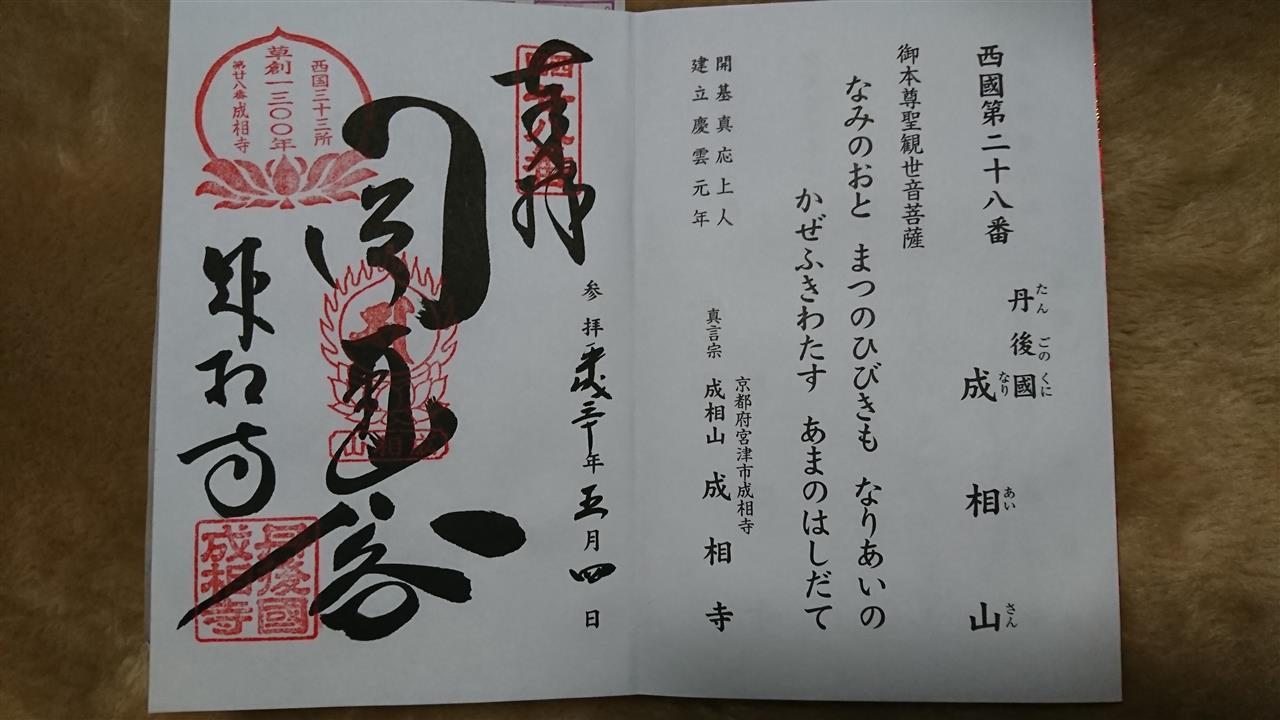 西國第二十八番
丹後國
たんごのくに
成相山
なりあいさん
御本尊聖観世音菩薩
なみのおと まつのひびきも なりあいの
かぜふきわたす あまのはしだて
開基真応上人
建立慶雲元年
京都府宮津市成相寺
真言宗 成相山 成相寺
奉拝
参拝平成三十年五月四日
西国三十三所
草創一三〇〇年
第廿八番 成相寺
成相寺
丹後國
成相寺